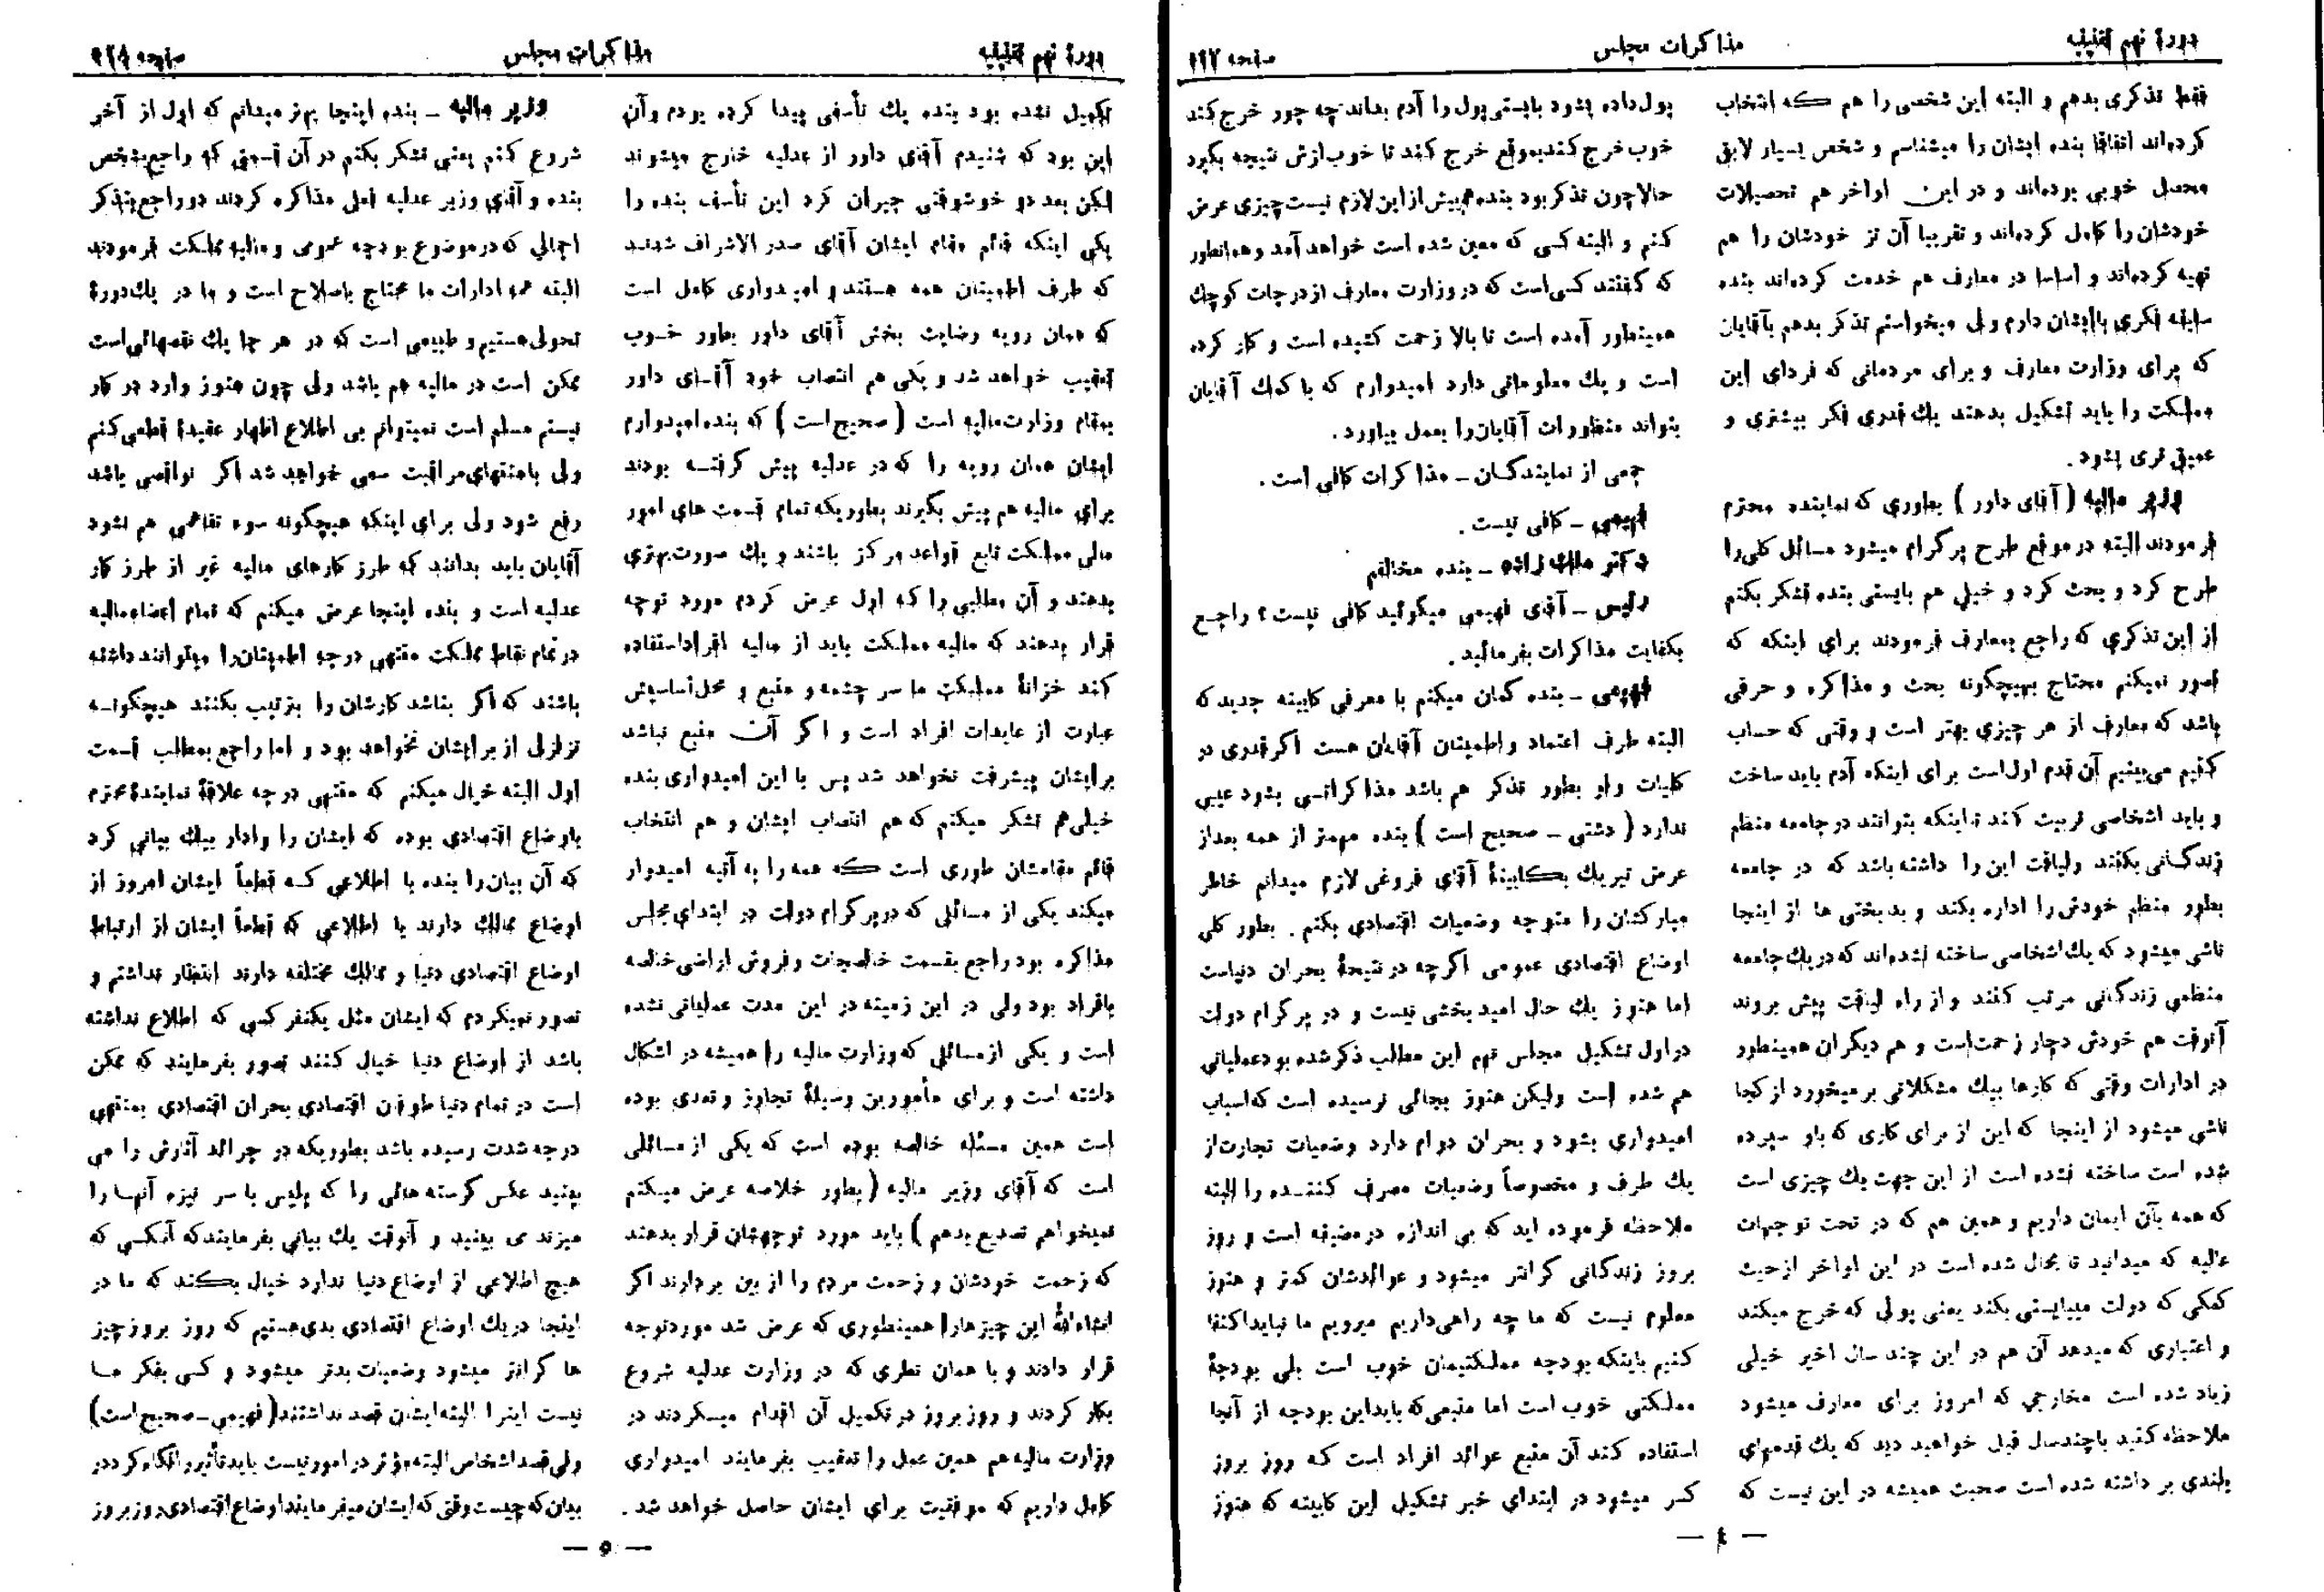 دورهٔ نهم تقنینیه
مذاکرات مجلس
صفحه ۹۲۷
فقط تذکری بدهم و البته این شخصی را هم که انتخاب
کرده‌اند اتفاقا بنده ایشان را میشناسم و شخص بسیار لایق
محصل خوبی بوده‌اند و در این اواخر هم تحصیلات
خودشان را کامل کرده‌اند و تقریبا آن تز خودشان را هم
تهیه کرده‌اند و اساسا در معارف هم خدمت کرده‌اند بنده
سابقه فکری باایشان دارم ولی میخواستم تذکر بدهم بآقایان
که برای وزارت معارف و برای مردمانی که فردای این
مملکت را باید تشکیل بدهند یك قدری فکر بیشتری و
عمیق تری بشود.
وزیر مالیه (آقای داور) بطوری که نماینده محترم
فرمودند البته در موقع طرح پرگرام میشود مسائل کلی را
طرح کرد و بحث کرد و خیلی هم بایستی بنده تشکر بکنم
از این تذکری که راجع بمعارف فرمودند برای اینکه که
تصور نمیکنم محتاج بهیچگونه بحث و مذاکره و حرفی
باشد که معارف از هر چیزی بهتر است و وقتی که حساب
کنیم می‌بینیم آن قدم اول‌است برای اینکه آدم باید ساخت
و باید اشخاصی تربیت کند تا اینکه بتوانند در جامعه منظم
زندگانی بکنند ولیاقت این را داشته باشد که در جامعه
بطور منظم خودش را اداره بکند و بدبختی ها از اینجا
ناشی میشود که یك اشخاصی ساخته نشده‌اند که در یك جامعه
منظمی زندگانی مرتب کنند و از راه لیاقت پیش بروند
آنوقت هم خودش دچار زحمت‌است و هم دیگران همینطور
در ادارات وقتی که کارها بیك مشکلاتی برمیخورد از کجا
ناشی میشود از اینجا که این از برای کاری که باو سپرده
شده است ساخته نشده است از این جهت یك چیزی است
که همه بآن ایمان داریم و همین هم که در تحت توجهات
عالیه که میدانید تا بحال شده است در این اواخر از حیث
کمکی که دولت میبایستی بکند یعنی پولی که خرج میکند
و اعتباری که میدهد آن هم در این چند سال اخیر خیلی
زیاد شده است مخارجی که امروز برای معارف میشود
ملاحظه کنید باچندسال قبل خواهید دید که یك قدمهای
بلندی بر داشته شده است صحبت همیشه در این نیست که
پول‌داده بشود بایستی پول را آدم بداند چه جور خرج کند
خوب خرج کند بموقع خرج کند تا خوب ازش نتیجه بگیرد
حالا چون تذکر بود بنده هم بیش از این لازم نیست چیزی عرض
کنم و البته کسی که معین شده است خواهد آمد و همانطور
که گفتند کسی است که در وزارت معارف از درجات کوچك
همینطور آمده است تا بالا زحمت کشیده است و کار کرده
است و یك معلوماتی دارد امیدوارم که با کمك آقایان
بتواند منظورات آقایان‌را بعمل بیاورد.
جمعی از نمایندگان ـ مذاکرات کافی است.
فهیمی ـ کافی نیست.
دکتر ملك زاده ـ بنده مخالفم
رئیس ـ آقای فهیمی میگوئید کافی نیست؟ راجع
بکفایت مذاکرات بفرمائید.
فهیمی ـ بنده گمان میکنم با معرفی کابینه جدید که
البته طرف اعتماد و اطمینان آقایان هست اگر قدری در
کلیات ولو بطور تذکر هم باشد مذاکراتی بشود عیبی
ندارد (دشتی ـ صحیح است) بنده مهمتر از همه بعداز
عرض تبریك بکابینهٔ آقای فروغی لازم میدانم خاطر
مبارکشان را متوجه وضعیات اقتصادی بکنم. بطور کلی
اوضاع اقتصادی عمومی اگرچه در نتیجهٔ بحران دنیاست
اما هنوز یك حال امید بخشی نیست و در پرگرام دولت
در اول تشکیل مجلس نهم این مطلب ذکر شده بود عملیاتی
هم شده است ولیکن هنوز بجائی نرسیده است که اسباب
امیدواری بشود و بحران دوام دارد وضعیات تجارت از
یك طرف و مخصوصاً وضعیات مصرف کننده را البته
ملاحظه فرموده اید که بی اندازه در مضیقه است و روز
بروز زندگانی گرانتر میشود و عوائدشان کمتر و هنوز
معلوم نیست که ما چه راهی داریم میرویم ما نباید اکتفا
کنیم باینکه بودجه مملکتیمان خوب است بلی بودجهٔ
مملکتی خوب است اما منبعی که باید این بودجه از آنجا
استفاده کند آن منبع عوائد افراد است که روز بروز
کسر میشود در ابتدای خبر تشکیل این کابینه که هنوز
— ٤ —
دورهٔ نهم تقنینیه
مذاکرات مجلس
صفحه ۹۲۸
تکمیل نشده بود بنده یك تأسفی پیدا کرده بودم وآن
این بود که شنیدم آقای داور از عدلیه خارج میشوند
لیکن بعد دو خوشوقتی جبران کرد این تأسف بنده را
یکی اینکه قائم مقام ایشان آقای صدر الاشراف شدند
که طرف اطمینان همه هستند و امیدواری کامل است
که همان رویه رضایت بخش آقای داور بطور خوب
تعقیب خواهد شد و یکی هم انتصاب خود آقای داور
بمقام وزارت مالیه است (صحیح است) که بنده امیدوارم
ایشان همان رویه را که در عدلیه پیش گرفته بودند
برای مالیه هم پیش بگیرند بطوریکه تمام قسمت های امور
مالی مملکت تابع قواعد مرکز باشند و یك صورت بهتری
بدهند و آن مطلبی را که اول عرض کردم مورد توجه
قرار بدهند که مالیه مملکت باید از مالیه افراد استفاده
کند خزانهٔ مملکت ما سر چشمه و منبع و محل اساسیش
عبارت از عایدات افراد است و اگر آن منبع نباشد
برایشان پیشرفت نخواهد شد پس با این امیدواری بنده
خیلی هم تشکر میکنم که هم انتصاب ایشان و هم انتخاب
قائم مقامشان طوری است که همه را به آتیه امیدوار
میکند یکی از مسائلی که در پرگرام دولت در ابتدای مجلس
مذاکره بود راجع بقسمت خالصجات و فروش اراضی خالصه
بافراد بود ولی در این زمینه در این مدت عملیاتی نشده
است و یکی از مسائلی که وزارت مالیه را همیشه در اشکال
داشته است و برای مأمورین وسیلهٔ تجاوز و تعدی بوده
است همین مسئله خالصه بوده است که یکی از مسائلی
است که آقای وزیر مالیه (بطور خلاصه عرض میکنم
نمیخواهم تصدیع بدهم) باید مورد توجهشان قرار بدهند
که زحمت خودشان و زحمت مردم را از بین بردارند اگر
انشاءالله این چیزهارا همینطوری که عرض شد مورد توجه
قرار دادند و با همان نظری که در وزارت عدلیه شروع
بکار کردند و روز بروز در تکمیل آن اقدام میکردند در
وزارت مالیه هم همین عمل را تعقیب بفرمایند امیدواری
کامل داریم که موفقیت برای ایشان حاصل خواهد شد.
وزیر مالیه ـ بنده اینجا بهتر میدانم که اول از آخر
شروع کنم یعنی تشکر بکنم در آن قسمتی که راجع بشخص
بنده و آقای وزیر عدلیه فعلی مذاکره کردند دو راجع بتذکر
اجمالی که در موضوع بودجه عمومی و مالیه مملکت فرمودند
البته همه ادارات ما محتاج باصلاح است و ما در یك دورهٔ
تحولی هستیم و طبیعی است که در هر جا یك نقصهائی است
ممکن است در مالیه هم باشد ولی چون هنوز وارد در کار
نیستم مسلم است نمیتوانم بی اطلاع اظهار عقیدهٔ قطعی کنم
ولی بامنتهای مراقبت سعی خواهد شد اگر نواقصی باشد
رفع شود ولی برای اینکه هیچگونه سوء تفاهمی هم نشود
آقایان باید بدانند که طرز کارهای مالیه غیر از طرز کار
عدلیه است و بنده اینجا عرض میکنم که تمام اعضاء مالیه
در تمام نقاط مملکت منتهی درجه اطمینان‌را میتوانند داشته
باشند که اگر بنا شد کارشان را بترتیب بکنند هیچگونه
تزلزلی از برایشان نخواهد بود و اما راجع بمطلب قسمت
اول البته خیال میکنم که منتهی درجه علاقهٔ نمایندهٔ محترم
باوضاع اقتصادی بوده که ایشان را وادار بیك بیانی کرد
که آن بیان را بنده با اطلاعی که قطعاً ایشان امروز از
اوضاع ممالك دارند با اطلاعی که قطعاً ایشان از ارتباط
اوضاع اقتصادی دنیا و ممالك مختلفه دارند انتظار نداشتم و
تصور نمیکردم که ایشان مثل یکنفر کسی که اطلاع نداشته
باشد از اوضاع دنیا خیال کنند تصور بفرمایند که ممکن
است در تمام دنیا طوفان اقتصادی بحران اقتصادی بمنتهی
درجه شدت رسیده باشد بطوریکه در جرائد آثارش را می
بینید عکس گرسنه هائی را که پلیس با سر نیزه آنها را
میزند می بینید و آنوقت یك بیانی بفرمایند که آنکسی که
هیچ اطلاعی از اوضاع دنیا ندارد خیال بکند که ما در
اینجا در یك اوضاع اقتصادی بدی هستیم که روز بروز چیز
ها گرانتر میشود وضعیات بدتر میشود و کسی بفکر ما
نیست اینرا البته ایشان قصد نداشتند (فهیمی ـ صحیح است)
ولی قصد اشخاص البته مؤثر در امور نیست باید تأثیر را نگاه کرد در
بیان که چیست وقتی که ایشان میفرمایند اوضاع اقتصادی روز بروز
— ٥ —